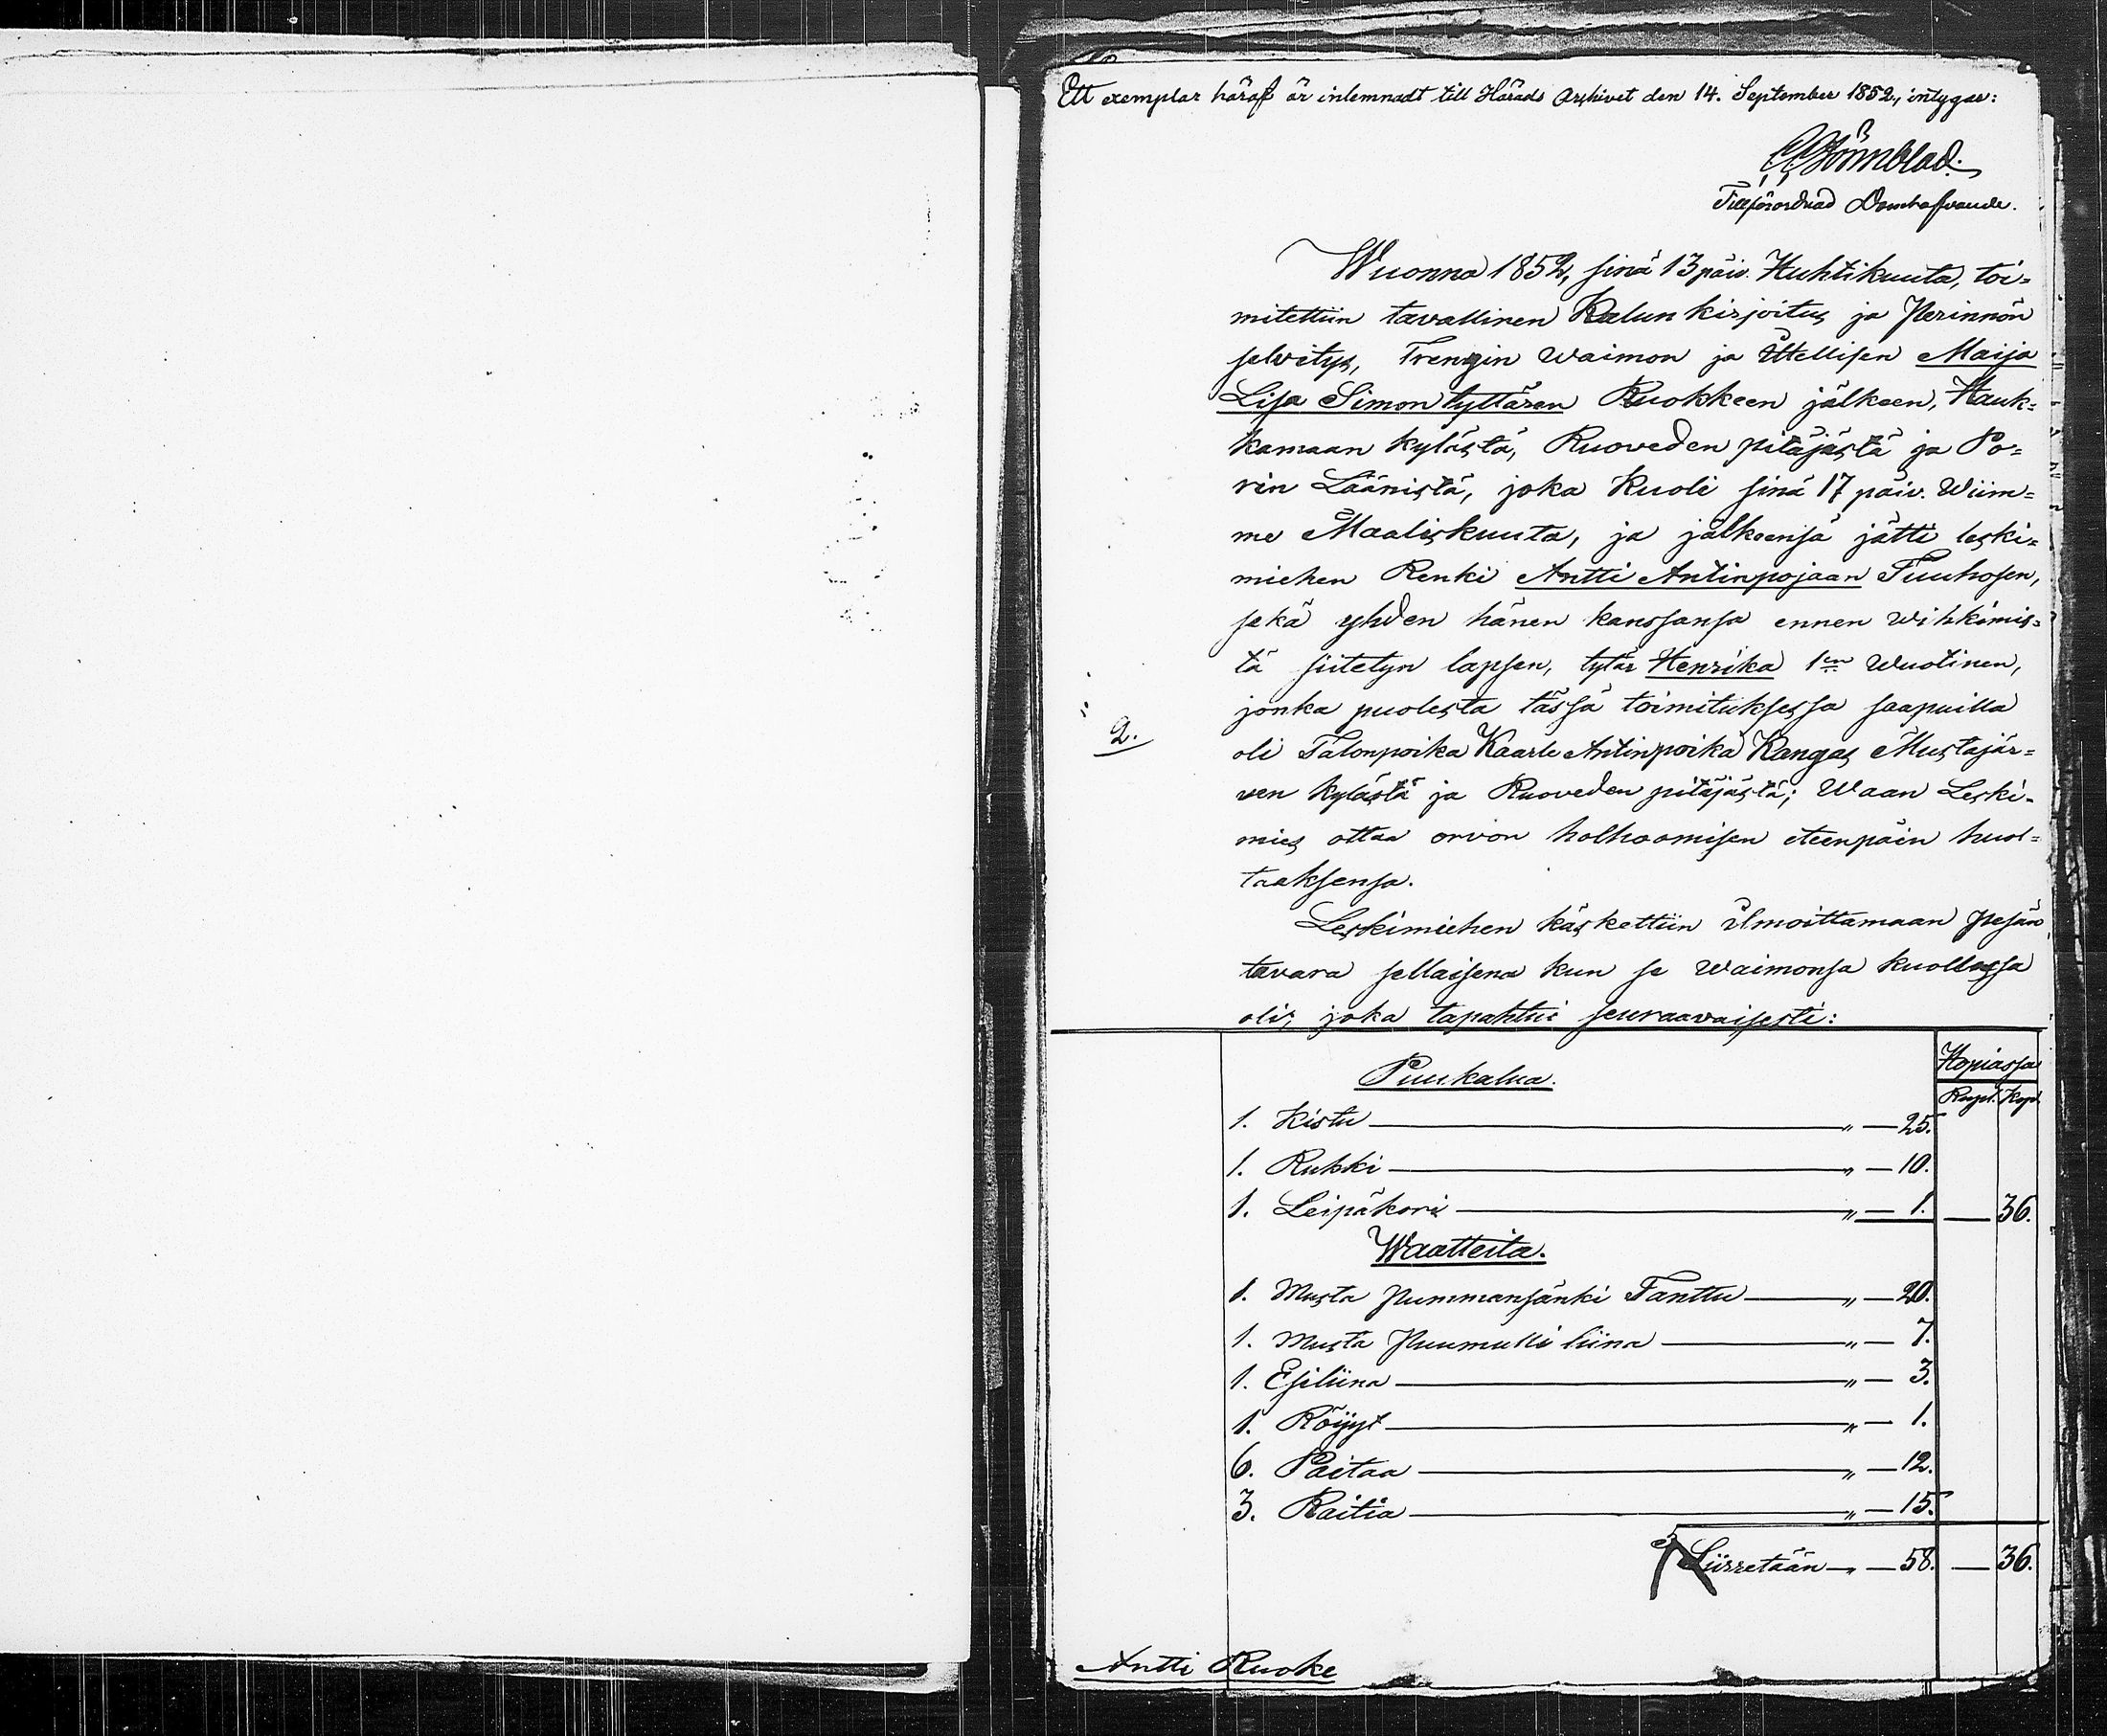 Ett exemplar häraf är inlemnadt till Härads Arkivet den 14. September 1852, intygar:
Tillförordnad Domhafvande.
Wuonna 1852, sinä 13 päiv. Huhtikuuta, toi=
mitettiin tavallinen Kalun kirjoitus ja Perinnön
selvitys, Trengin waimon ja Ittellisen Maija
Lisa Simon tyttären Ruokkeen jälkeen, Hauk=
kamaan kylästä, Ruoveden pitäjästä ja Po=
rin Läänistä, joka kuoli sinä 17 päiv. Wiim=
me Maaliskuuta, ja jälkeensä jätti leski=
miehen Renki Antti Antinpojaan Tuuhosen,
sekä yhden hänen kanssansa ennen wihkimis=
tä siitetyn lapsen, tytär Henrika 1en wuotinen,
jonka puolesta tässä toimituksessa saapuilla
2.
oli Talonpoika Kaarle Antinpoika Kangas Mustajär=
ven kylästä ja Ruoveden pitäjästä; Waan Leski=
mies ottaa orvon holhoomisen eteenpäin huol=
taaksensa.
Leskimiehen käskettiin ilmoittamaan pesän
tavara sellaisena kun se waimonsa kuollessa
oli, joka tapahtui seuraavaisesti:
Hopiassa
Puukalua.
Rupl. Kop.
1. Kistu — „ — 25.
1. Rukki — „ — 10.
1. Leipäkori — „ — 1. — 36.
Waatteita.
1. Musta Pummansänki Tanttu — „ — 20.
1. Musta Puumulli liina — „ — 7.
1. Esiliina — „ — 3.
1. Röijyt — „ — 1.
6. Paitaa — „ — 12.
3. Raitia — „ — 15.
Siirretään — „ — 58. — 36.
Antti Ruoke